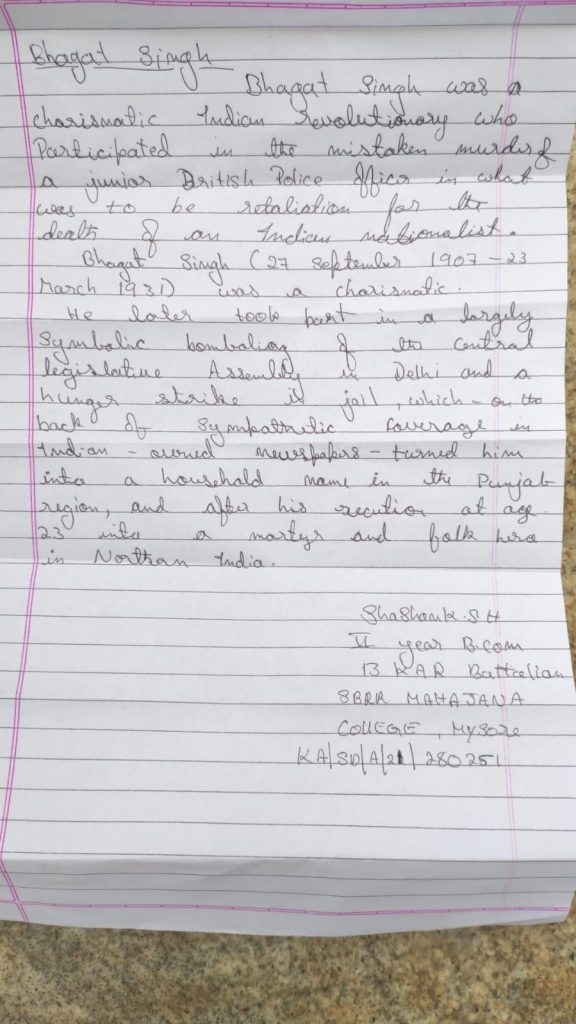 Bhagat Singh
Bhagat Singh was a
charismatic Indian revolutionary who
Participated in the mistaken murder of
a junior British Police Officer in what
was to be retaliation for the
death of an Indian nationalist.
Bhagat Singh (27 September 1907 - 23
March 1931) was a charismatic.
He later took part in a largely
Symbolic bombaling of the Central
legislative Assembly in Delhi and a
hunger strike in jail, which - on the
back of Sympathetic Coverage in
Indian - owned newspapers - turned him
into a household name in the Punjab
region, and after his recution at age
23 into a martyr and folk hero
in Northan India.
Shashank. S H
II year B.com
13 KAR Battalian
SBRR MAHAJANA
COLLEGE, Mysore
KA/SD/A/21/280251